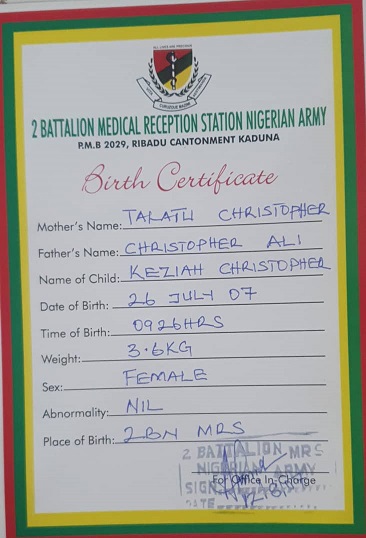 2 BATTALION MEDICAL RECEPTION STATION NIGERIAN ARMY
P.M.B 2029, RIBADU CANTONMENT KADUNA
Birth Certificate
Mother's Name: TALATU CHRISTOPHER
Father's Name: CHRISTOPHER ALI
Name of Child: KEZIAH CHRISTOPHER
Date of Birth: 26 JULY 07
Time of Birth: 0926HRS
Weight: 3.6KG
Sex: FEMALE
Abnormality: NIL
Place of Birth: 2BN MRS
2 BATTALION MRS
NIGERIAN ARMY
For Office In-Charge
SIGN
DATE